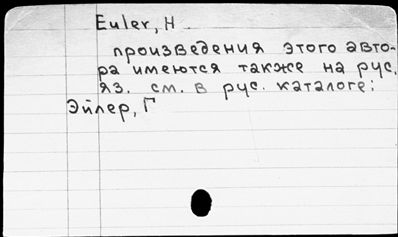 Euler, H
произведения этого авто-
ра имеются также на рус.
яз. см. в рус. каталоге:
Эйлер, Г